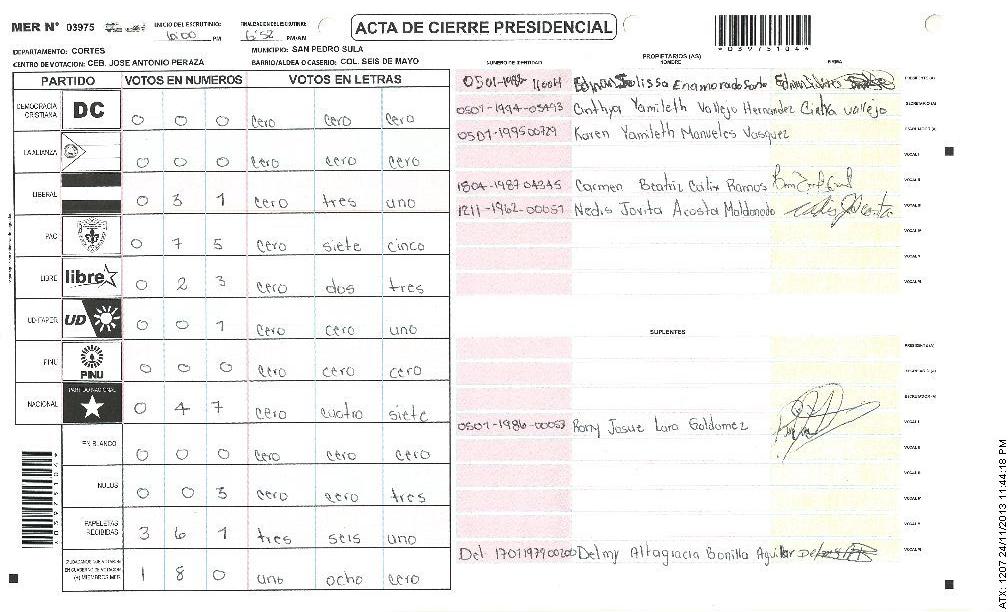 MER Nº 03975
INICIO DEL ESCRUTINIO: 6:00 PM
FINALIZACION DEL ESCRUTINIO: 6:52 PM/AM
ACTA DE CIERRE PRESIDENCIAL
DEPARTAMENTO: CORTES
MUNICIPIO: SAN PEDRO SULA
CENTRO DE VOTACION: CEB. JOSE ANTONIO PERAZA
BARRIO/ALDEA O CASERIO: COL. SEIS DE MAYO
PARTIDO VOTOS EN NUMEROS VOTOS EN LETRAS
DEMOCRACIA CRISTIANA DC 0 0 0 cero cero cero
LA ALIANZA 0 0 0 cero cero cero
LIBERAL 0 3 1 cero tres uno
PAC 0 7 5 cero siete cinco
LIBRE libre 0 2 3 cero dos tres
UD-FAPER UD 0 0 1 cero cero uno
PINU PINU 0 0 0 cero cero cero
NACIONAL PARTIDO NACIONAL 0 4 7 cero cuatro siete
EN BLANCO 0 0 0 cero cero cero
NULOS 0 0 3 cero cero tres
PAPELETAS RECIBIDAS 3 6 1 tres seis uno
CIUDADANOS QUE VOTARON EN CUADERNO DE VOTACION (+) MIEMBROS MER 1 8 0 uno ocho cero
NUMERO DE IDENTIDAD PROPIETARIOS (AS) NOMBRE FIRMA
Enamorado PRESIDENTE (A)
0501-1994-03493 Cinthya Yamileth Vallejo Hernandez Cinthya vallejo SECRETARIO (A)
0501-199500729 Karen Yamileth Manueles Vasquez ESCRUTADOR (A)
VOCAL I
1804-1987-04345 Carmen Beatriz Calix Ramos VOCAL II
1211-1962-00051 Nedis Jovita Acosta Maldonado VOCAL III
VOCAL IV
VOCAL V
VOCAL VI
SUPLENTES
PRESIDENTE (A)
SECRETARIO (A)
ESCRUTADOR (A)
0501-1986-00053 Rony Josue Lara Galdamez VOCAL I
VOCAL II
VOCAL III
VOCAL IV
VOCAL V
Del Delmy Altagracia Bonilla Aguilar VOCAL VI
ATX: 1207 24/11/2013 11:44:18 PM